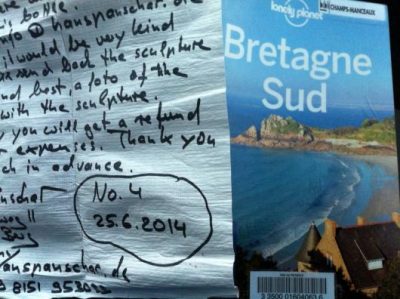 is bottle.
info @ hanspanschar. de
it would be very kind
send back the sculpture
and best a foto of the
with the sculpture.
you will get a refund
r expenses. Thank you
ch in advance.
No. 4
25.6.2014
anspanschar.de
8151 953022
lonely planet
CHAMPS-MANCEAUX
Bretagne
Sud